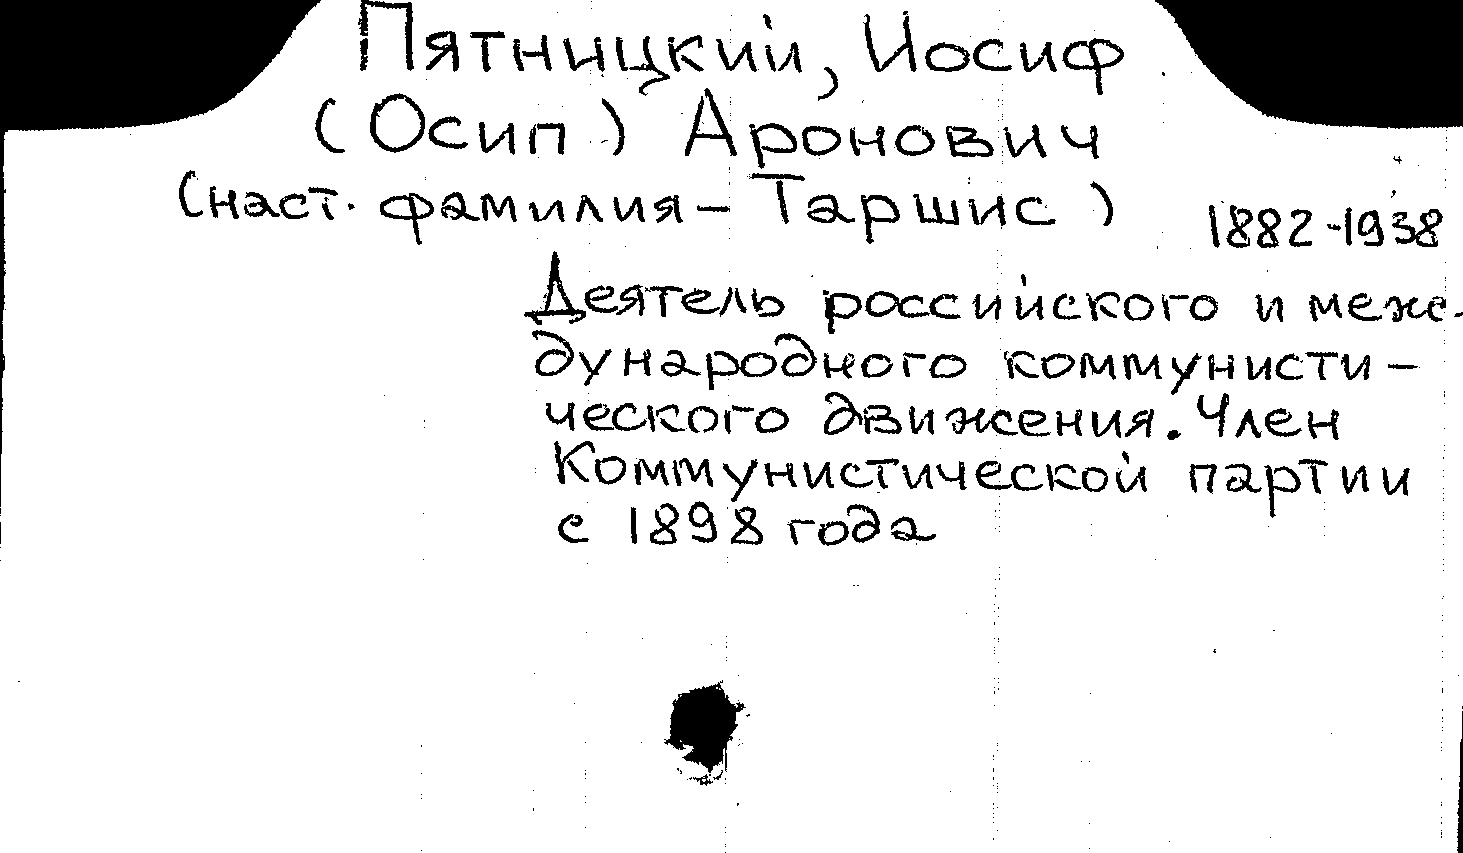 Пятницкий, Иосиф
(Осип) Аронович
(наст. фамилия – Таршис)
1882-1938
Деятель российского и меж-
дународного коммунисти-
ческого движения. Член
Коммунистической партии
с 1898 года